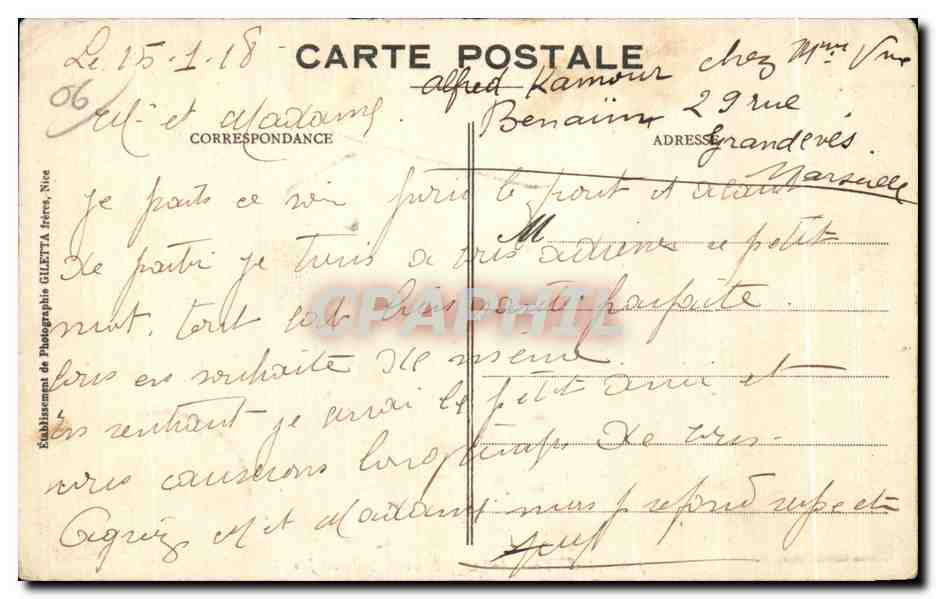 Le 15-1-18
CARTE POSTALE
06
Alfred Kamoun chez Mme Vve
Benaïm 29 rue
Grandevès.
Marseille
M. et Madame.
CORRESPONDANCE
ADRESSE
Je pars ce soir le front et avant
M
de partir je tiens à vous adresser ce petit
mot. tout est santé parfaite.
vous en souhaite de meme.
En rentrant je serai le petit ami et
nous causerons longtemps de vous.
Agréez M et Madame mes profond respects
CPAPHIL
Établissement de Photographie GILETTA frères, Nice